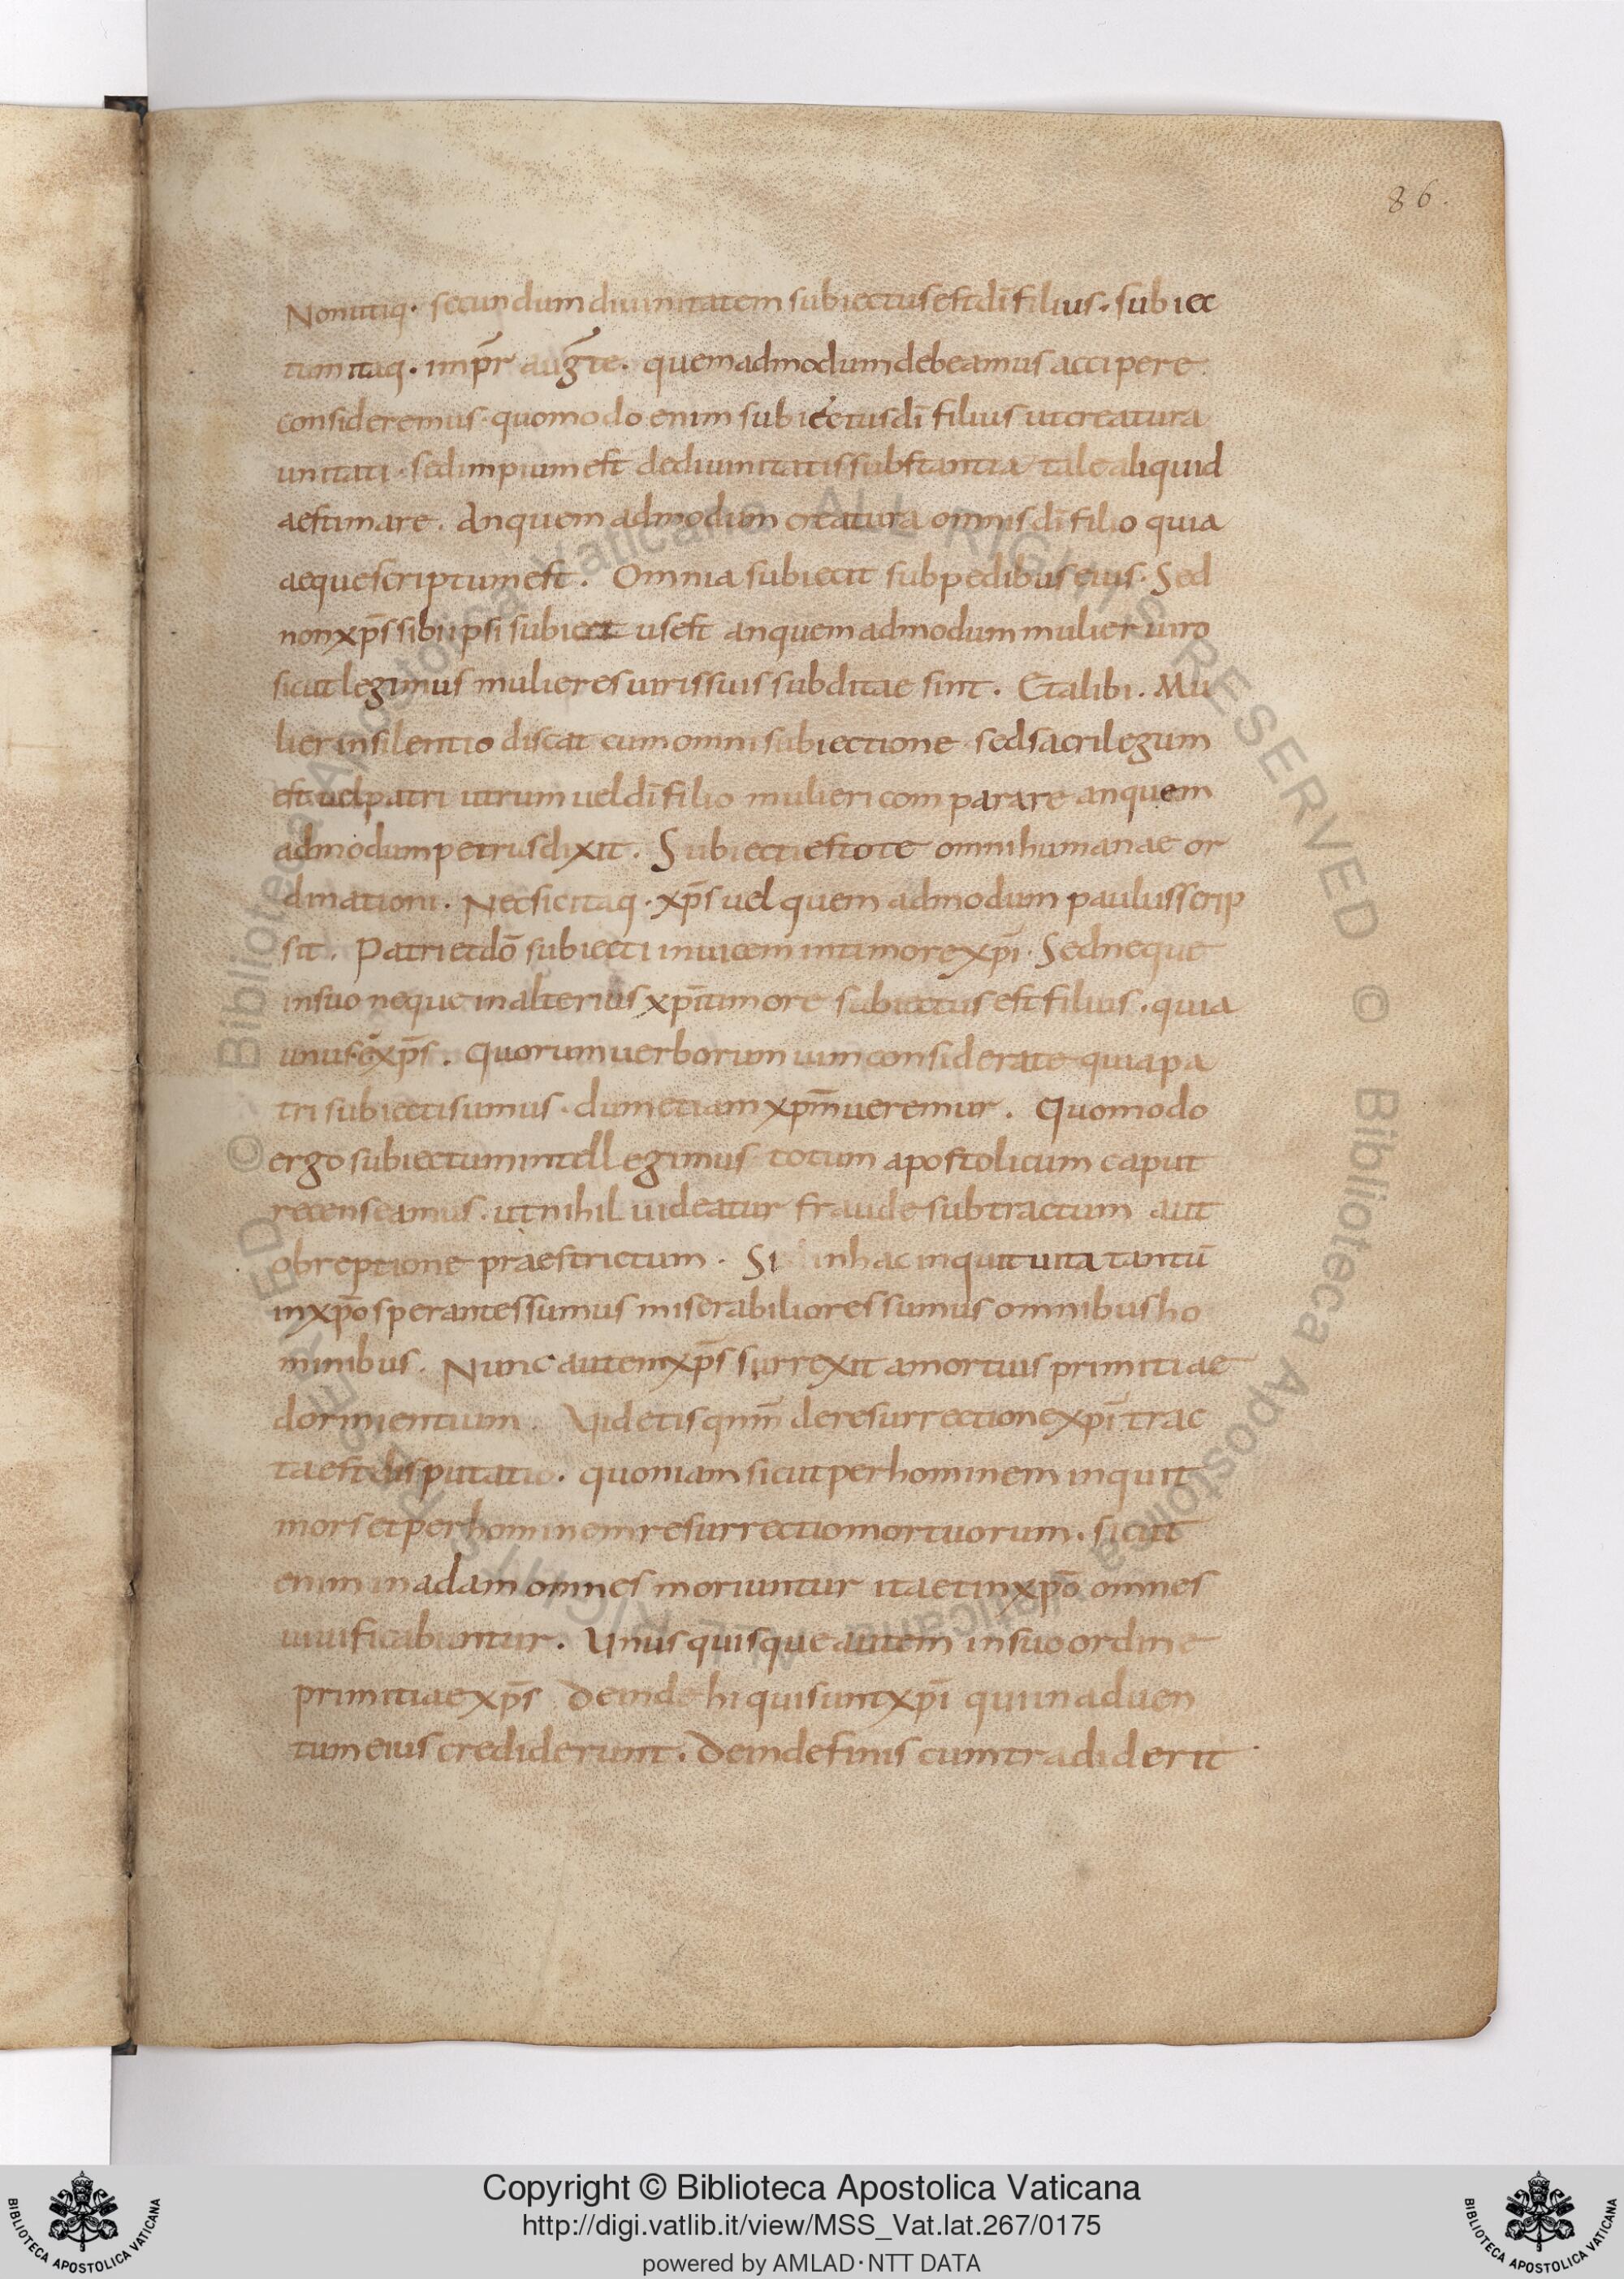 86.
Nonutiq· secundum diuinitatem subiectus est dī filius· subiec
tum itaq· imp̄r aug̅te· quemadmodum debeamus accipere
consideremus· quomodo enim subiectus dī filius ut creatura
unitati· sed impium est de diuinitatis substantia tale aliquid
aestimare. An quemadmodum creatura omnis dī filio quia
aeque scriptum est. Omnia subiecit sub pedibus eius· Sed
non xp̄s sibi ipsi subiectus est an quemadmodum mulier uiro
sicut legimus mulieres uiris suis subditae sint. Et alibi. Mu
lier in silentio discat cum omni subiectione sed sacrilegum
est uel patri utrum uel dī filio mulieri comparare an quem
admodum petrus dixit. Subiecti estote omni humanae or
dinationi. Nec sic itaq· xp̄s uel quem admodum paulus scrip
sit. Patri et dō subiecti inuicem in timore xp̄i· Sed neque
in suo neque in alterius xp̄i timore subiectus est filius· quia
unus ē xp̄s. Quorum uerborum uim considerate quia pa
tri subiecti sumus· dum etiam xp̄m ueremur. Quomodo
ergo subiectum intellegimus totum apostolicum caput
recenseamus· ut nihil uideatur fraude subtractum aut
obreptione praestrictum. Si in hac inquit uita tantū
in xp̄o sperantes sumus miserabiliores sumus omnibus ho
minibus. Nunc autem xp̄s surrexit a mortuis primitiae
dormientium. Videtis qnm̄ de resurrectione xp̄i trac
ta est disputatio. quoniam sicut per hominem inquit
mors et per hominem resurrectio mortuorum. sicut
enim in adam omnes moriuntur ita et in xp̄o omnes
uiuificabuntur. Unus quisque autem in suo ordine
primitiae xp̄s Deinde hi qui sunt xp̄i qui in aduen
tum eius crediderunt. Deinde finis cum tradiderit
Copyright © Biblioteca Apostolica Vaticana
http://digi.vatlib.it/view/MSS_Vat.lat.267/0175
powered by AMLAD·NTT DATA
BIBLIOTECA APOSTOLICA VATICANA
BIBLIOTECA APOSTOLICA VATICANA
© Biblioteca Apostolica Vaticana ALL RIGHTS RESERVED © Biblioteca Apostolica Vaticana ALL RIGHTS RESERVED